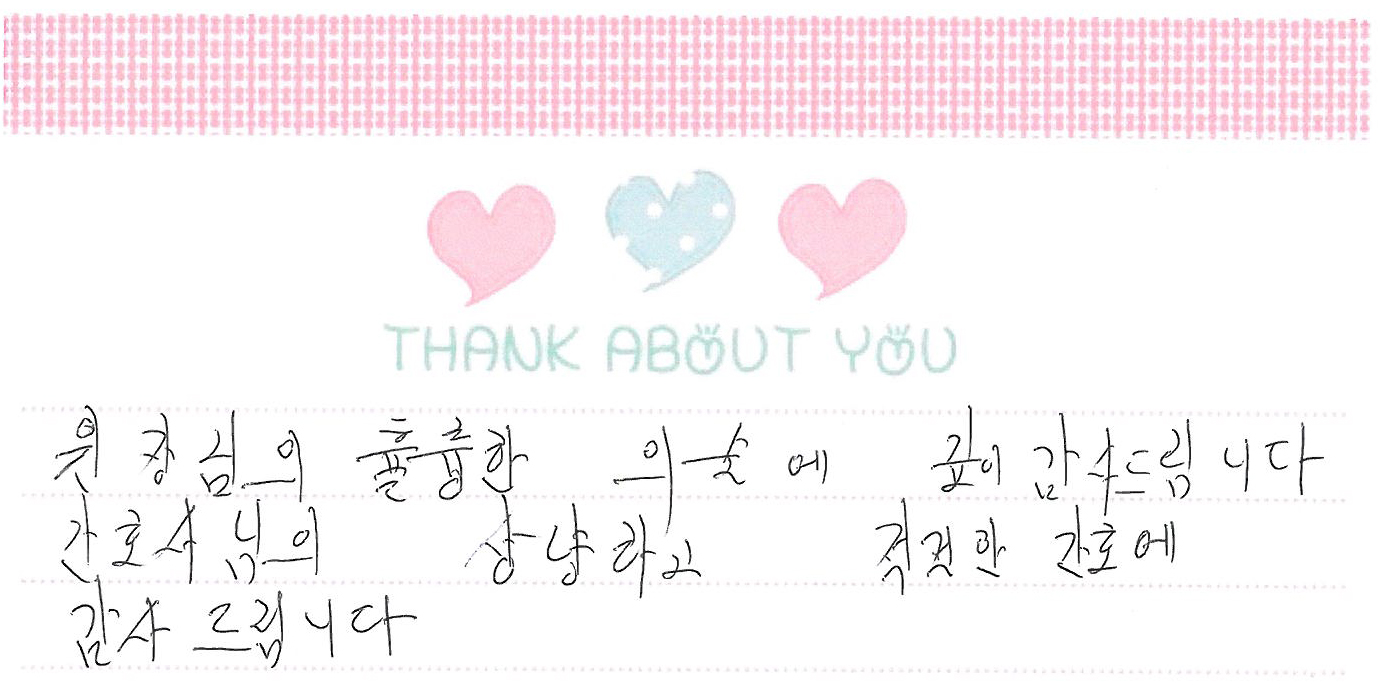 THANK ABOUT YOU
원장님의 훌륭한 의술에 깊이 감사드립니다
간호사님의 상냥하고 적절한 간호에
감사 드립니다